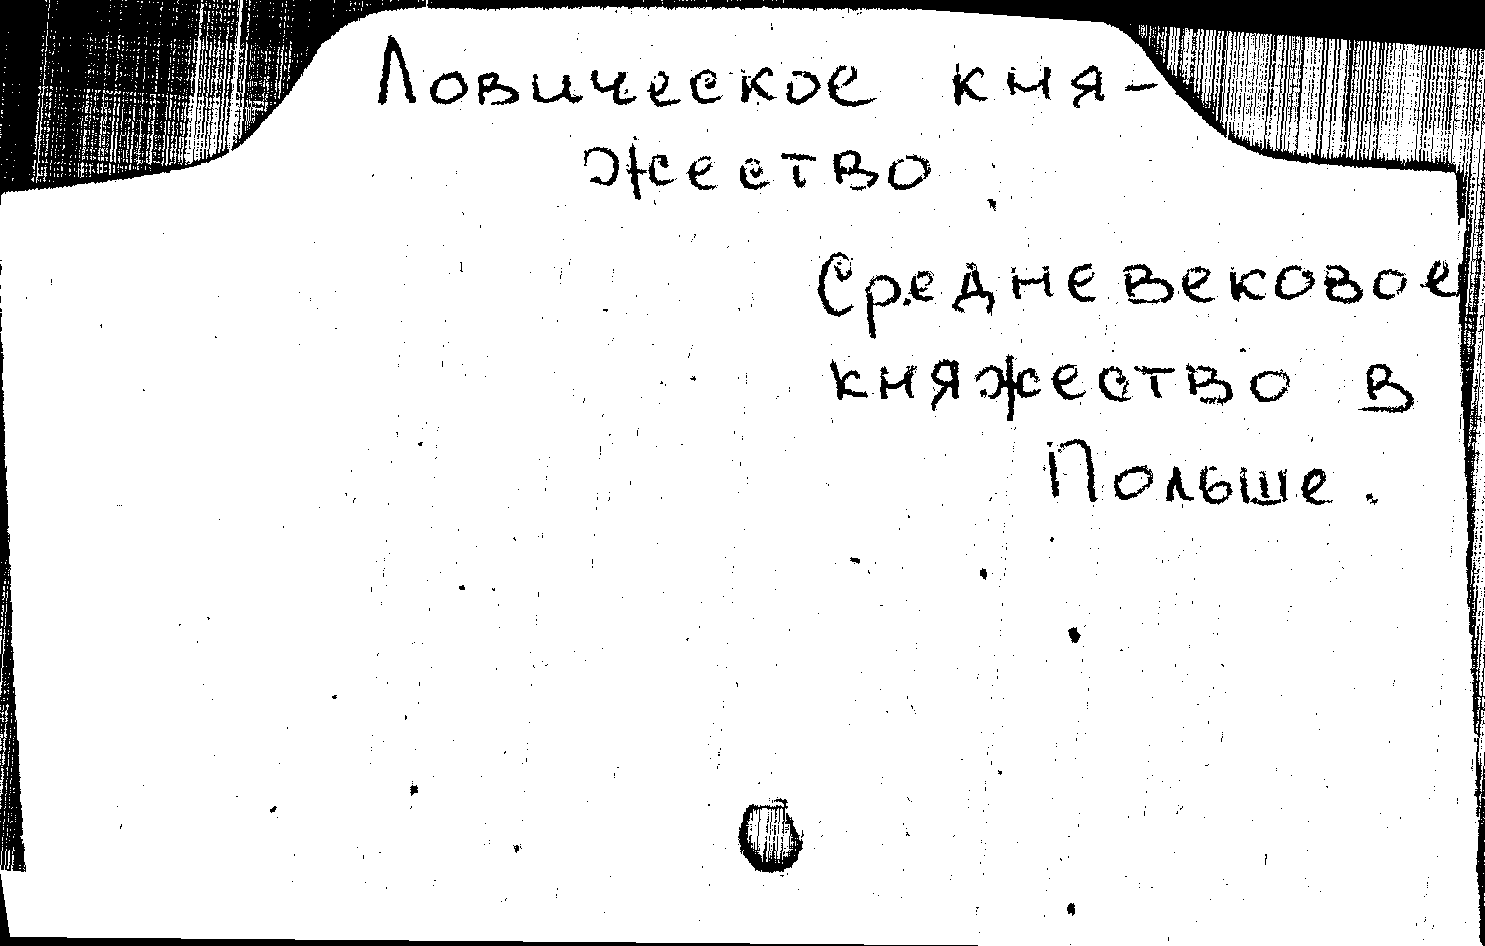 Ловическое кня-
жество
Средневековое
княжество в
Польше.